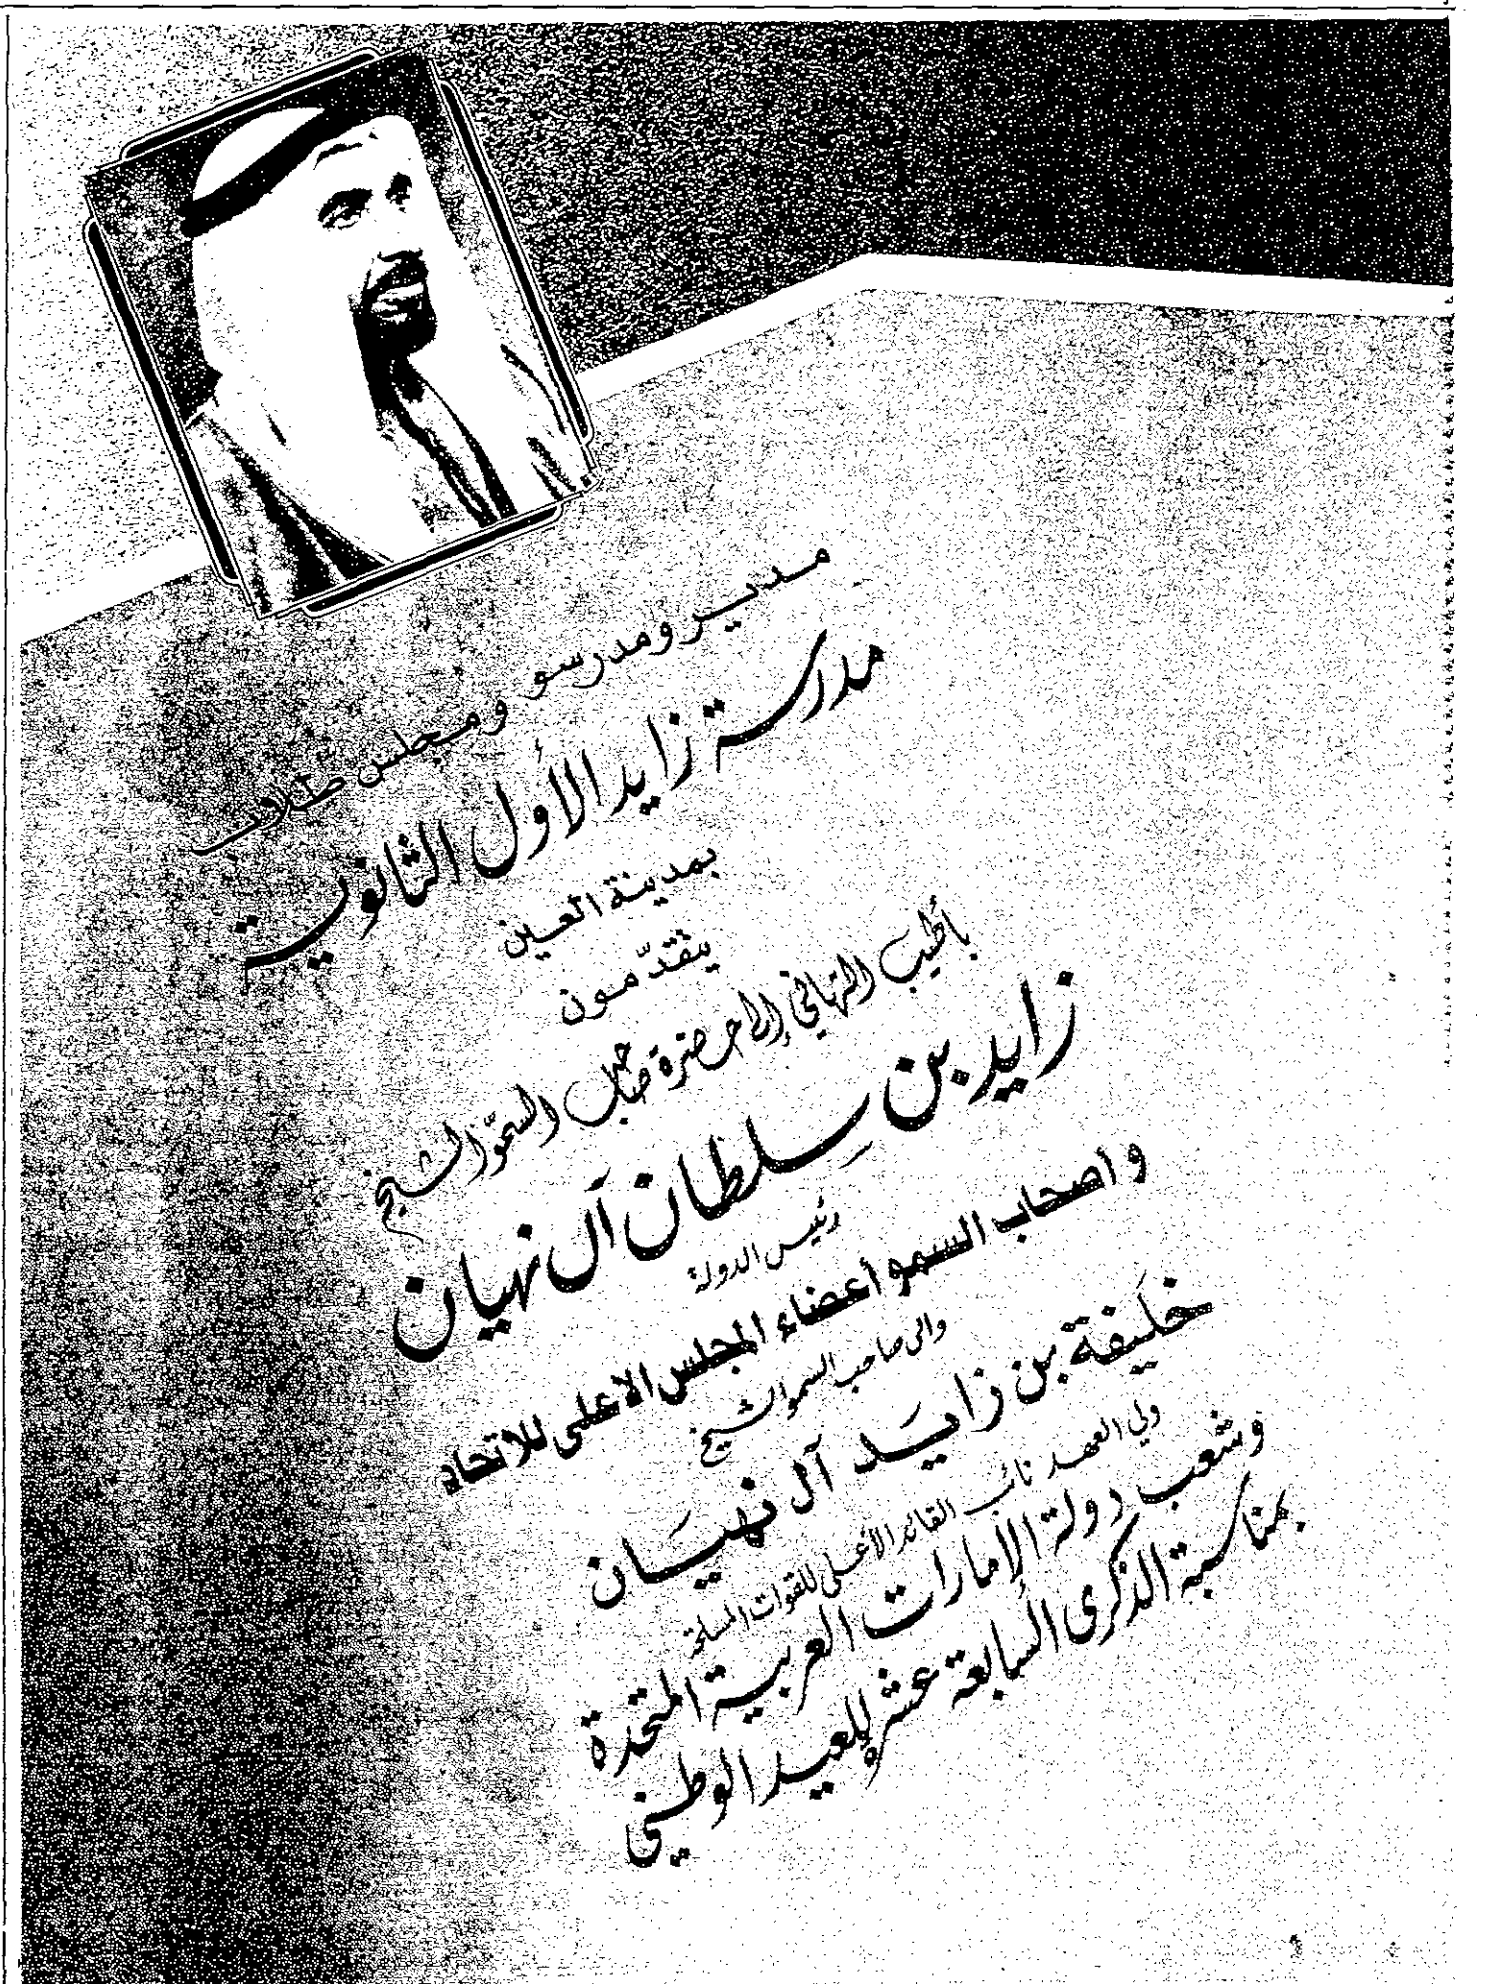 مدير ومدرسو ومجلس طلاب
مدرسة زايد الأول الثانوية
بمدينة العين
يتقدّمون
بأطيب التهاني إلى حضرة صاحب السموّ الشيخ
زايد بن سلطان آل نهيان
رئيس الدولة
وأصحاب السمو أعضاء المجلس الاعلى للاتحاد
والى صاحب السمو الشيخ
خليفة بن زايد آل نهيان
ولي العهد نائب القائد الأعلى للقوات المسلحة
وشعب دولة الإمارات العربية المتحدة
بمناسبة الذكرى السابعة عشرة للعيد الوطني